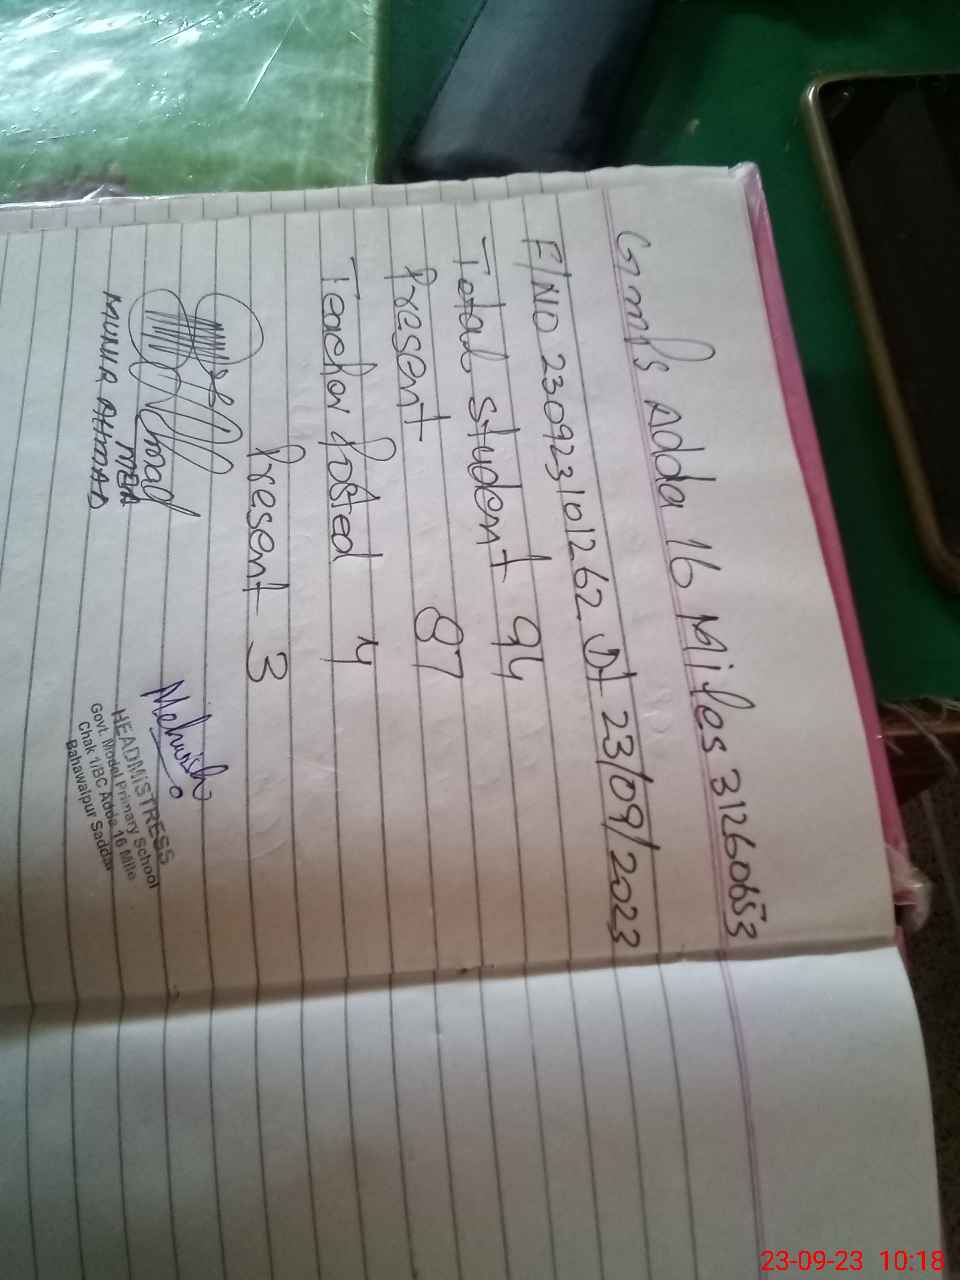 Gmps Adda 16 Miles 31260653
F/NO 230923101262. Dt 23/09/2023
Total Student 94
Present 87
Teacher Posted 4
Present 3
Ahmad
MEA
MUNIR AHMAD
Mehwish
HEADMISTRESS
Govt. Model Primary School
Chak 1/BC Adda 16 Mile
Bahawalpur Saddar
23-09-23 10:18